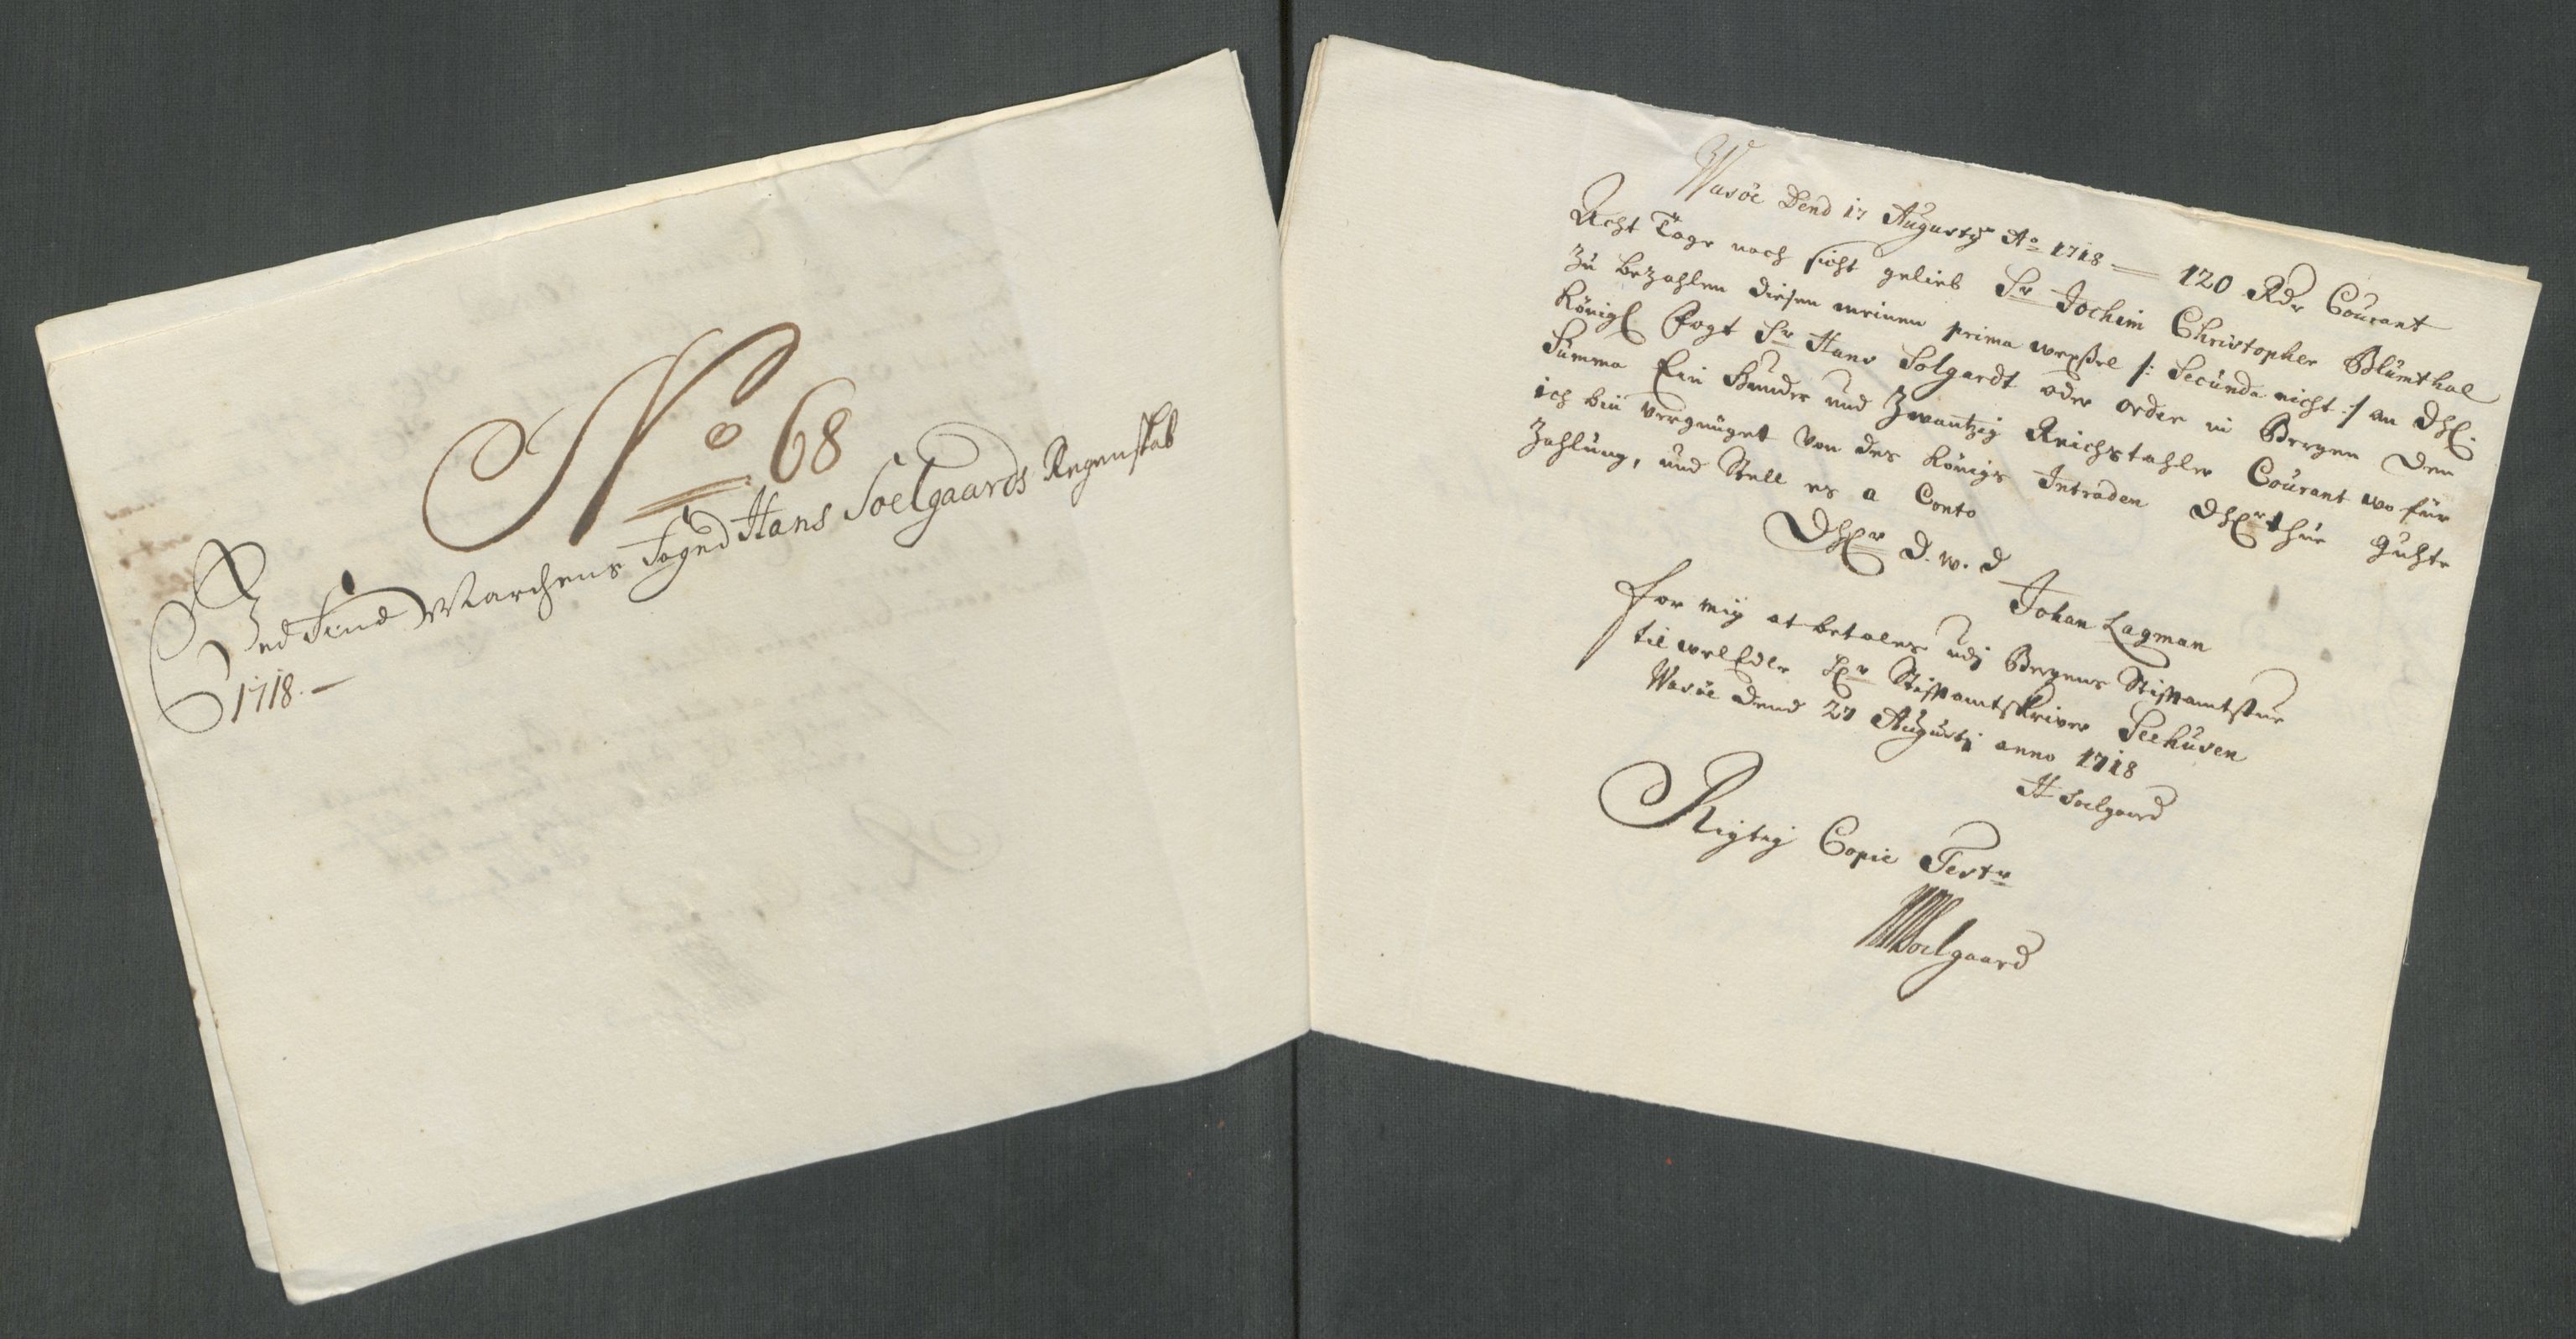 No 68
Ved Find Marchens Fogd Hans Soelgaards Regenskab
1718.—
Wasöe Dend 17 Augusty Ao 1718 = 120 Rdr Courant
Acht Tage nach sicht gelieb Sr Jochim Christopher Blümthal
Zu bezahlen diesen meinen prima wexßel /: Secunda nicht :/ an dhl.
Königl Fogt Sr Hans Solgardt oder order in Bergen den
Summa Ein Hunder und Zwantzig Reichstahler Courant wo für
ich bin vergnüget von des Königs Intraden dhr thue guhte
Zahlung, und Stell es a Conto
Dhr D. w. d
Johan Lagman
for mig at betales udj Bergens Stiftamtstue
til welEdle Hr Stiftamtskriver Seehusen
Wasöe dend 27 Augustj anno 1718
H Soelgaard
Rigtig Copie Testr
HSoelgaard